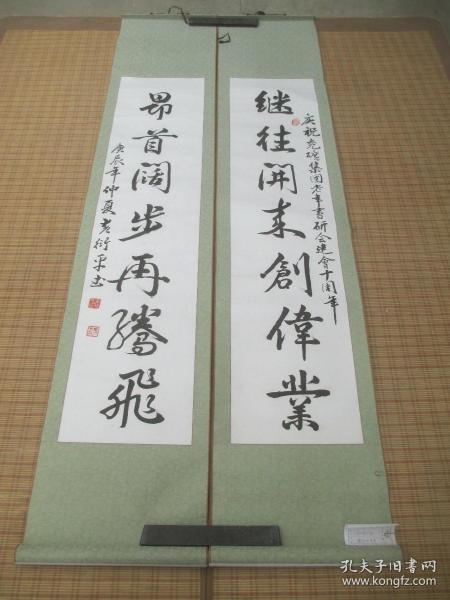 继往開来創偉業
庆祝兖矿集团老年书研会建會十周年
昂首阔步再騰飛
庚辰年仲夏
孔夫子旧书网
www.kongfz.com